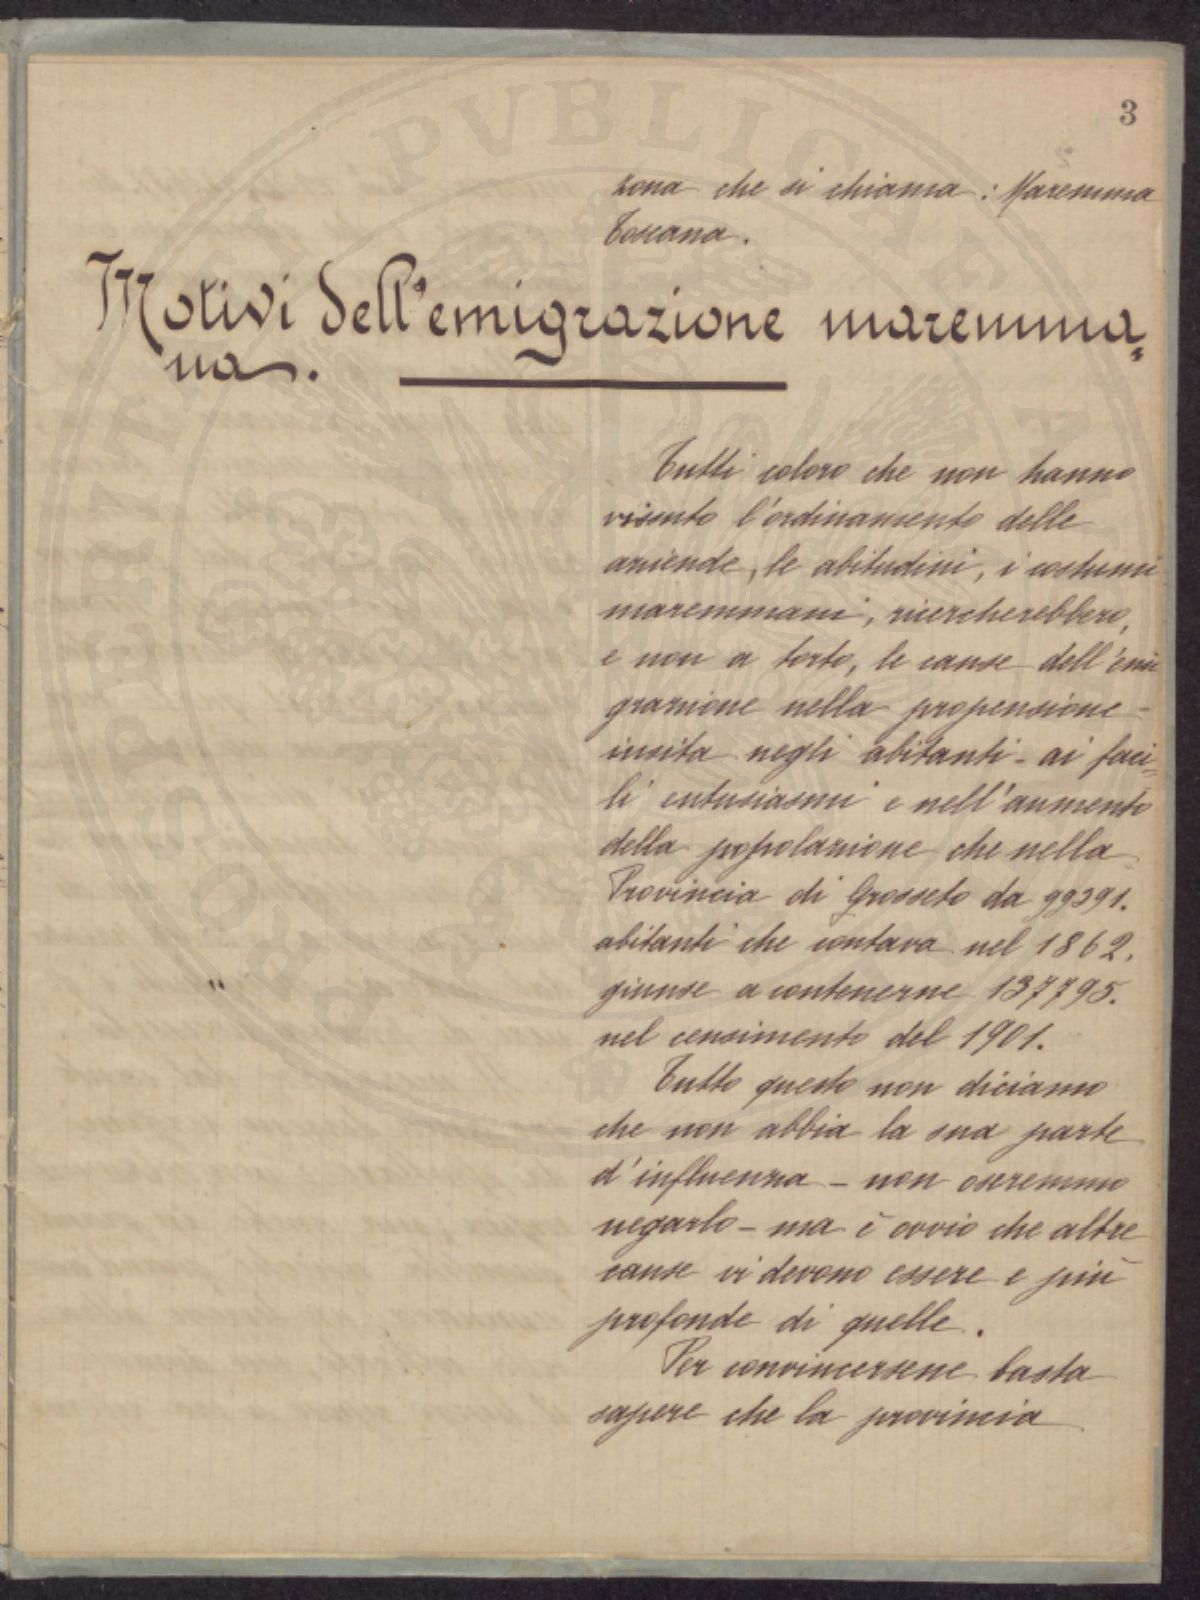 3
zona che si chiama: Maremma
Toscana.
Motivi dell'emigrazione maremma=
na.
Tutti coloro che non hanno
vissuto l'ordinamento delle
aziende, le abitudini, i costumi
maremmani, ricercherebbero,
e non a torto, le cause dell'emi
grazione nella propensione -
insita negli abitanti - ai faci=
li entusiasmi e nell'aumento
della popolazione che nella
Provincia di Grosseto da 99391.
abitanti che contava nel 1862.
giunse a contenerne 137795.
nel censimento del 1901.
Tutto questo non diciamo
che non abbia la sua parte
d'influenza - non oseremmo
negarlo - ma è ovvio che altre
cause vi devono essere e più
profonde di quelle.
Per convincersene basta
sapere che la provincia
PROSPERITATI PVBLICAE